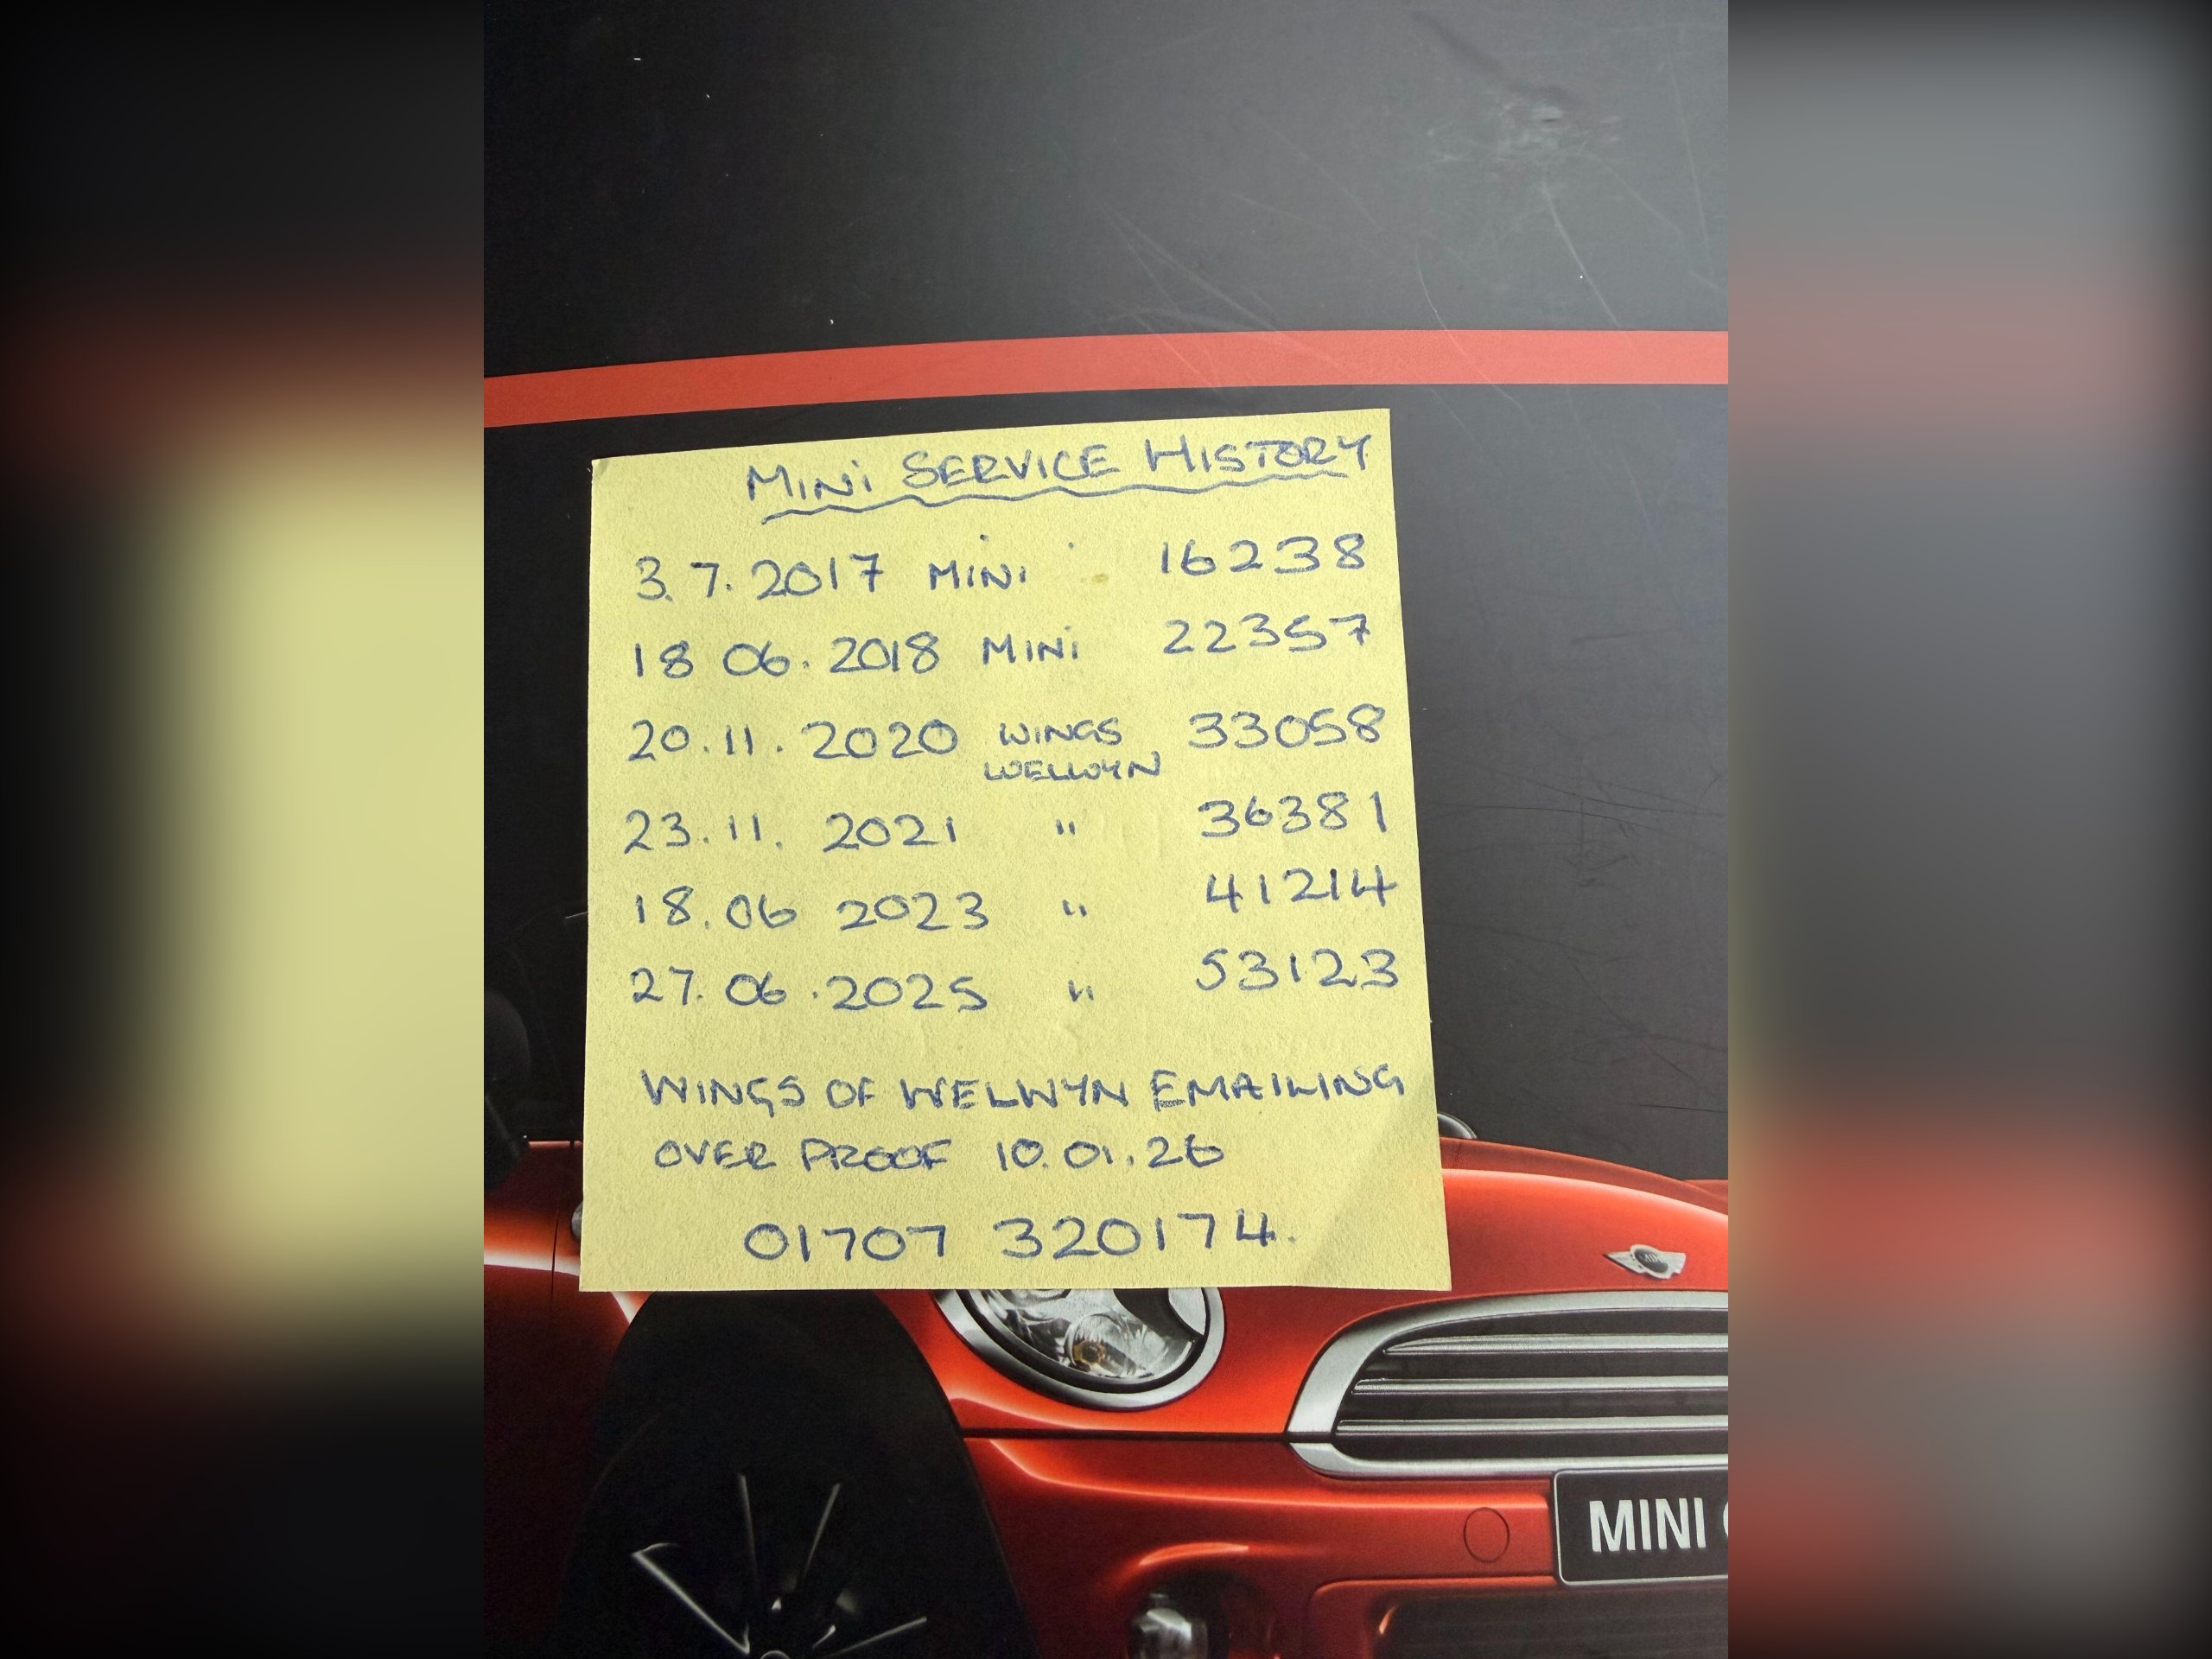 MINI SERVICE HISTORY
3.7.2017 MINI 16238
18 06.2018 MINI 22357
20.11.2020 WINGS WELWYN 33058
23.11.2021 " 36381
18.06 2023 " 41214
27.06.2025 " 53123
WINGS OF WELWYN EMAILING
OVER PROOF 10.01.26
01707 320174.
MINI